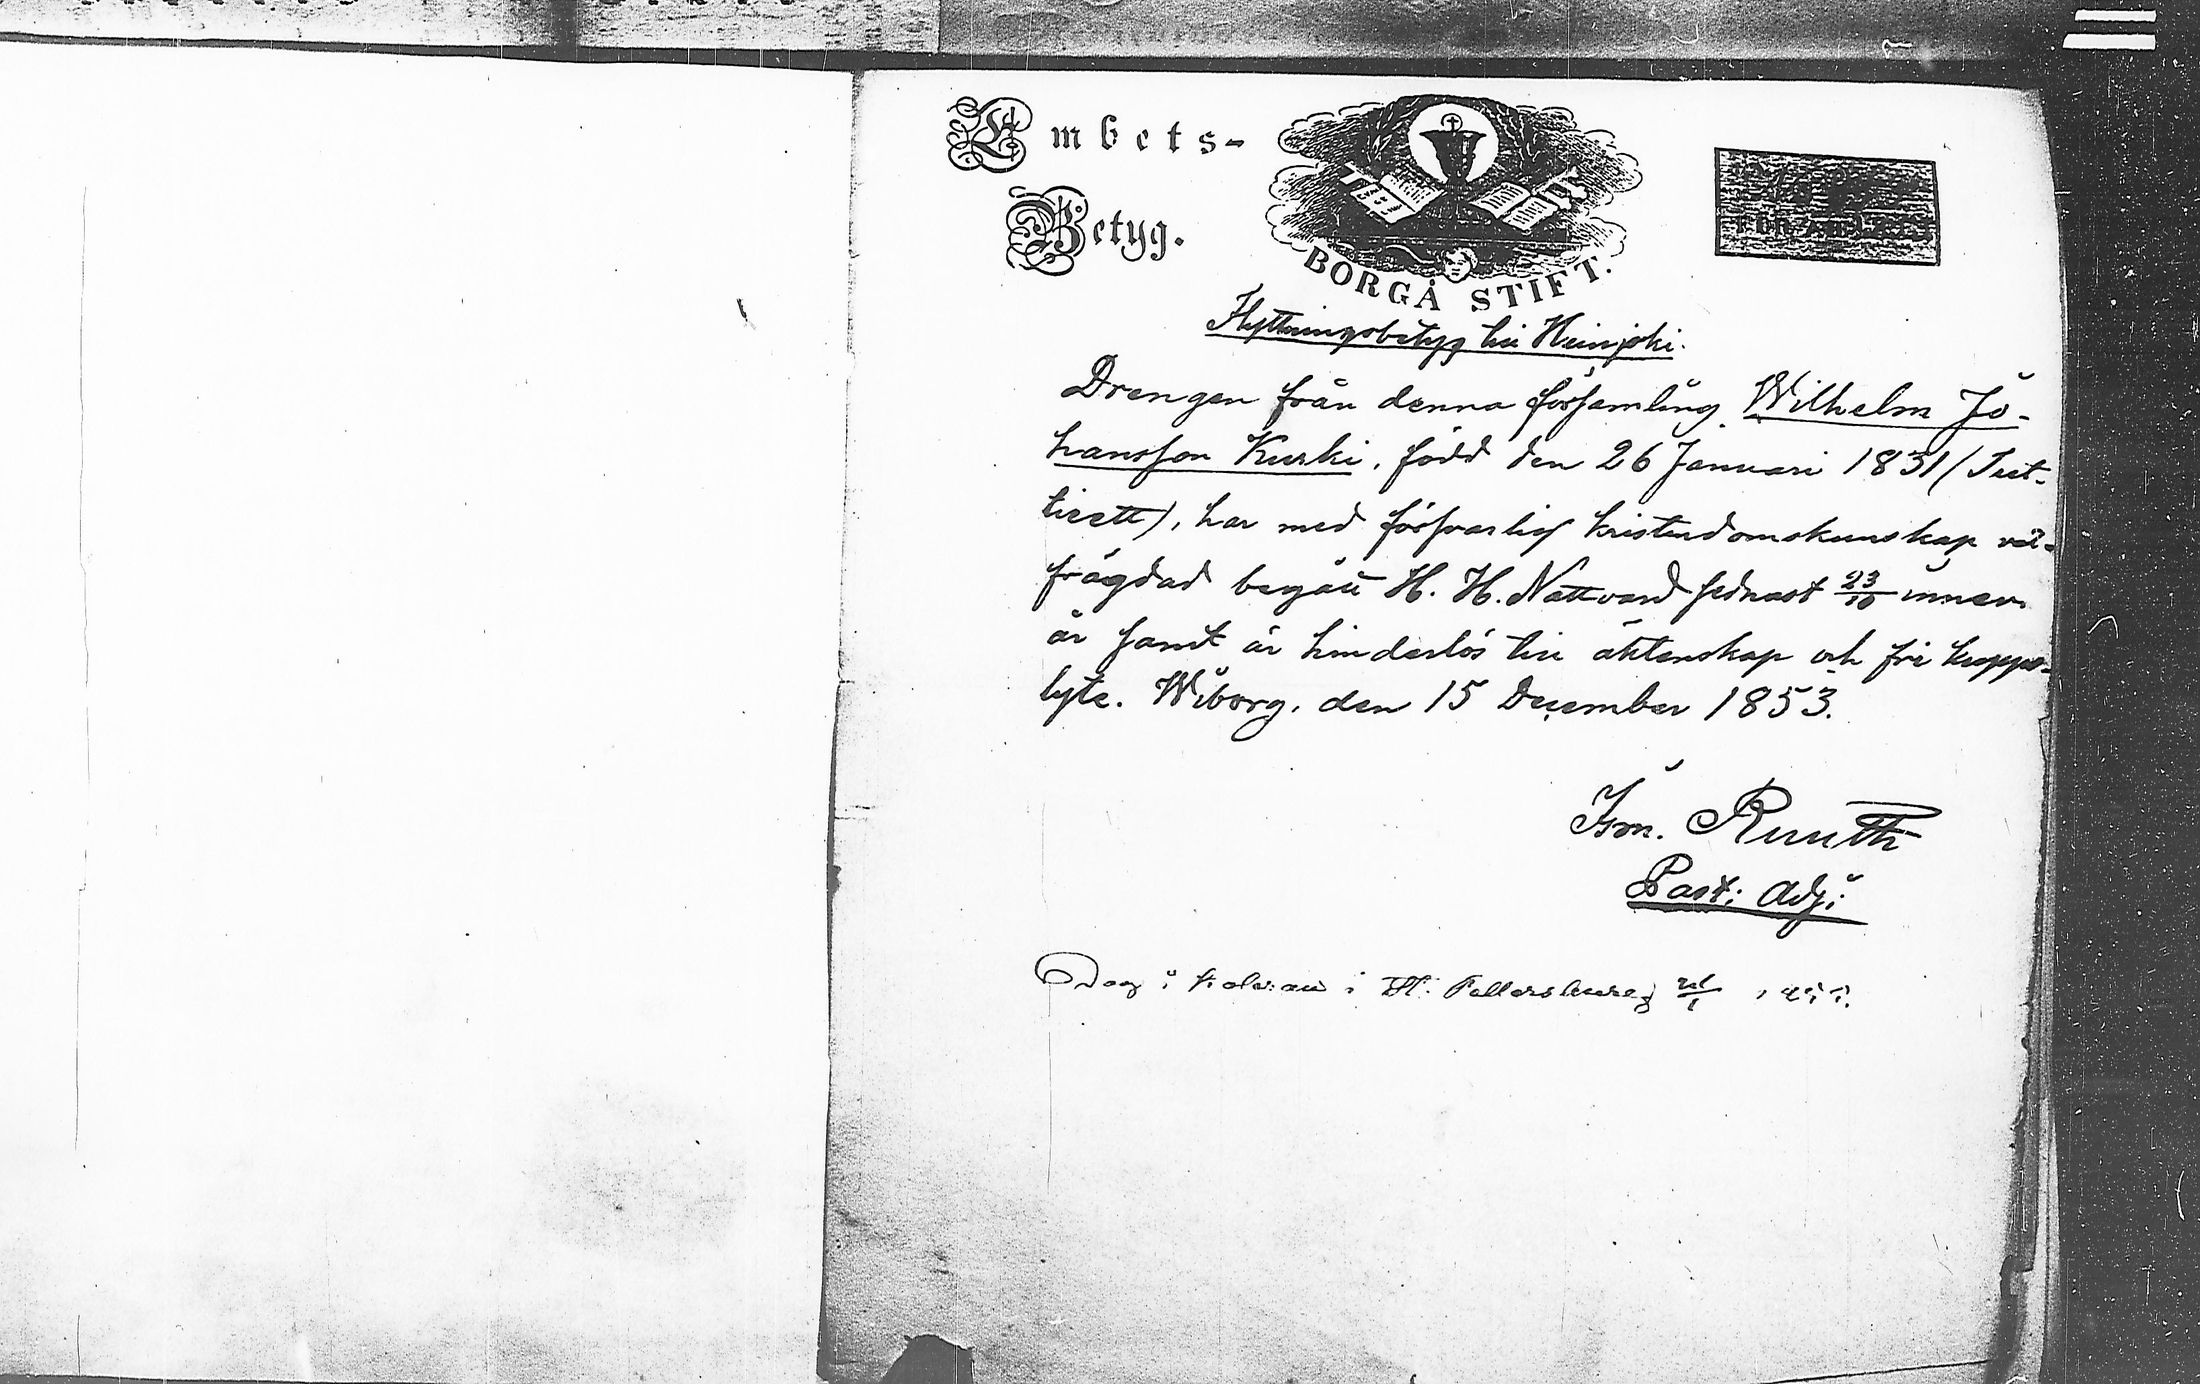 Embets-
Betyg.
BORGÅ STIFT.
Flyttningsbetyg till Heinjoki.
Drengen från denna församling Wilhelm Jo-
hansson Kurki, född den 26 Januari 1831 (Tut-
tiett), har med försvarlig kristendomskunskap väl-
frägdad begått H. H. Nattvard sednast 23/10 innev.
år samt är hinderlös till äktenskap och fri kopps-
lyte. Wiborg, den 15 December 1853.
Im. Ruuth
Past: Adj:
Dog i koleran i St. Petersburg